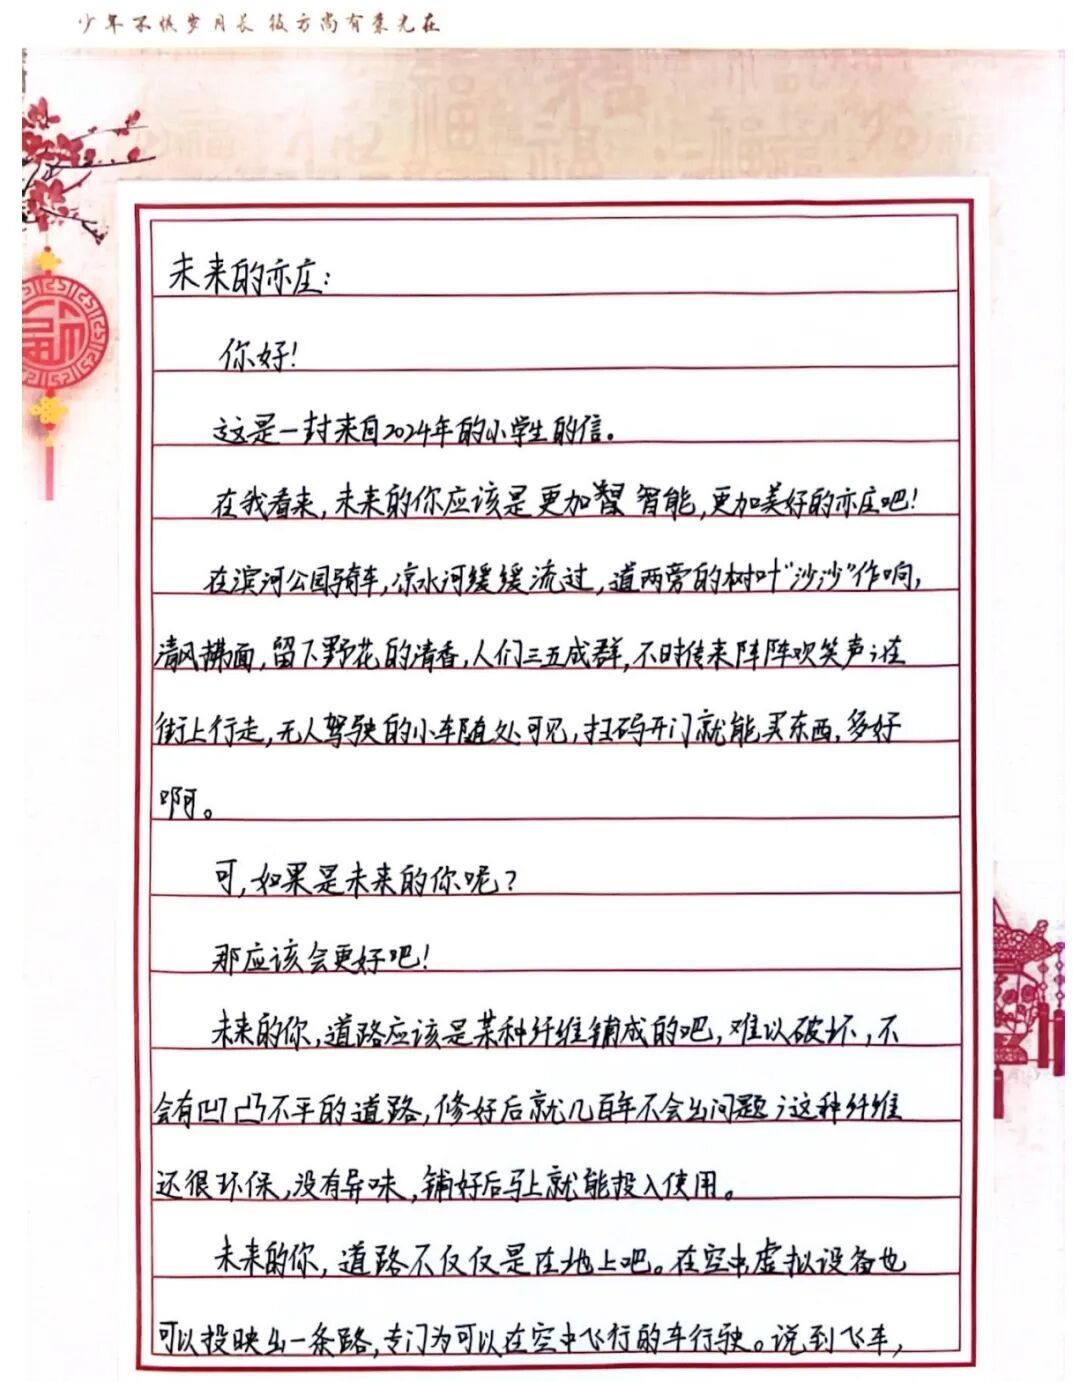 少年不惧岁月长 彼方尚有荣光在
未来的亦庄：
你好！
这是一封来自2024年的小学生的信。
在我看来，未来的你应该是更加智能，更加美好的亦庄吧！
在滨河公园骑车，凉水河缓缓流过，道两旁的树叶“沙沙”作响，
清风拂面，留下野花的清香，人们三五成群，不时传来阵阵欢笑声；在
街上行走，无人驾驶的小车随处可见，扫码开门就能买东西，多好
啊。
可，如果是未来的你呢？
那应该会更好吧！
未来的你，道路应该是某种纤维铺成的吧，难以破坏，不
会有凹凸不平的道路，修好后就几百年不会出问题；这种纤维
还很环保，没有异味，铺好后马上就能投入使用。
未来的你，道路不仅仅是在地上吧。在空中虚拟设备也
可以投映出一条路，专门为可以在空中飞行的车行驶。说到飞车，